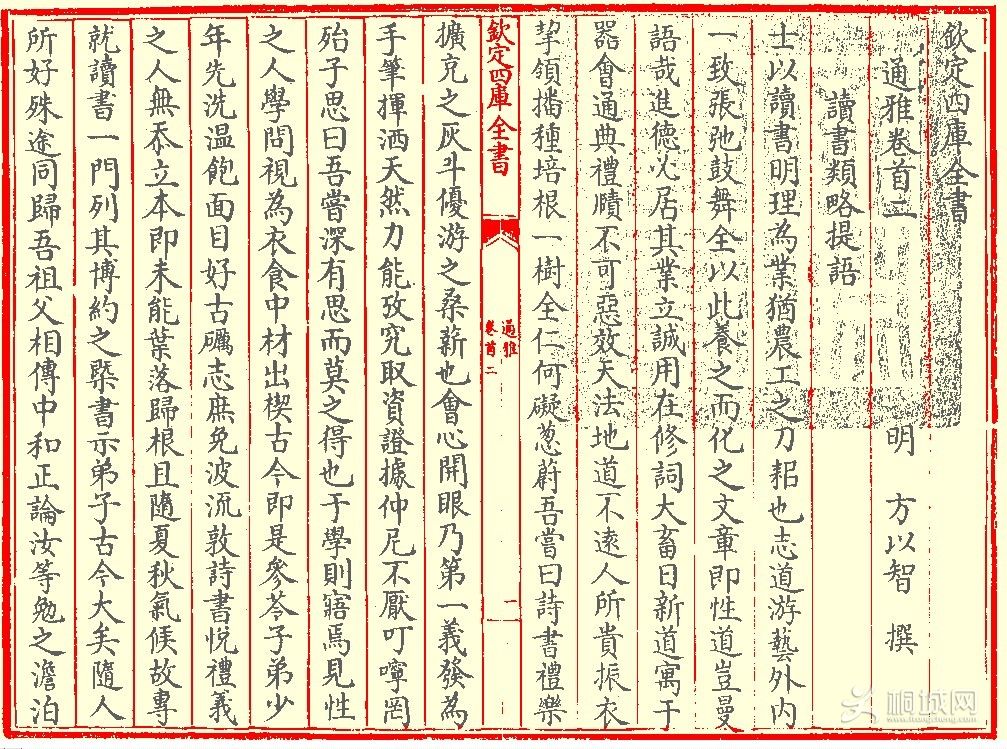 欽定四庫全書
通雅卷首二
明 方以智 撰
讀書類略提語
士以讀書明理為業猶農工之刀耜也志道游藝外内
一致張弛鼓舞全以此養之而化之文章即性道豈曼
語哉進德必居其業立誠用在修詞大畜日新道寓于
器會通典禮賾不可惡效天法地道不遠人所貴振衣
挈領播種培根一樹全仁何礙葱蔚吾嘗曰詩書禮樂
欽定四庫全書
通雅
卷首二
一
擴充之灰斗優游之桑薪也會心開眼乃第一義發為
手筆揮洒天然力能攷究取資證據仲尼不厭叮嚀罔
殆子思曰吾嘗深有思而莫之得也于學則寤焉見性
之人學問視為衣食中材出楔古今即是參苓子弟少
年先洗温飽面目好古礪志庶免波流敦詩書悅禮義
之人無忝立本即未能葉落歸根且隨夏秋氣候故專
就讀書一門列其博約之槩書示弟子古今大矣隨人
所好殊途同歸吾祖父相傳中和正論汝等勉之澹泊
桐城网
www.tongcheng.cn